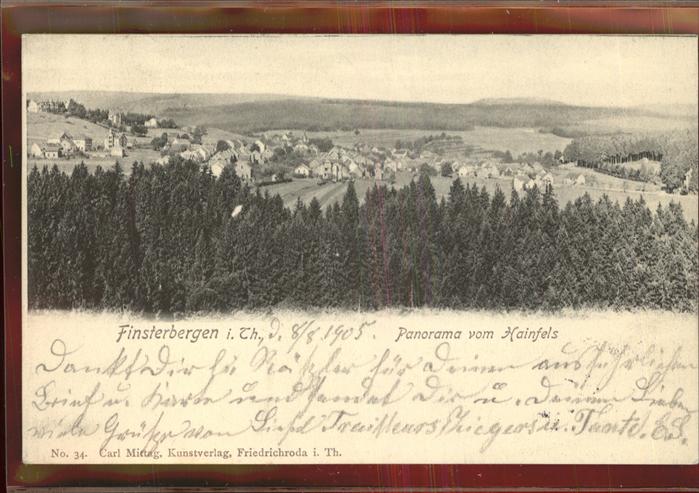 Finsterbergen i. Th., d. 8/8 1905. Panorama vom Hainfels
Dankt Dir für Deinen ausführlichen
Brief u. Karte und sendet Dir u. Deinen Lieben
viele Grüße von u. Tante
No. 34. Carl Mittag, Kunstverlag, Friedrichroda i. Th.